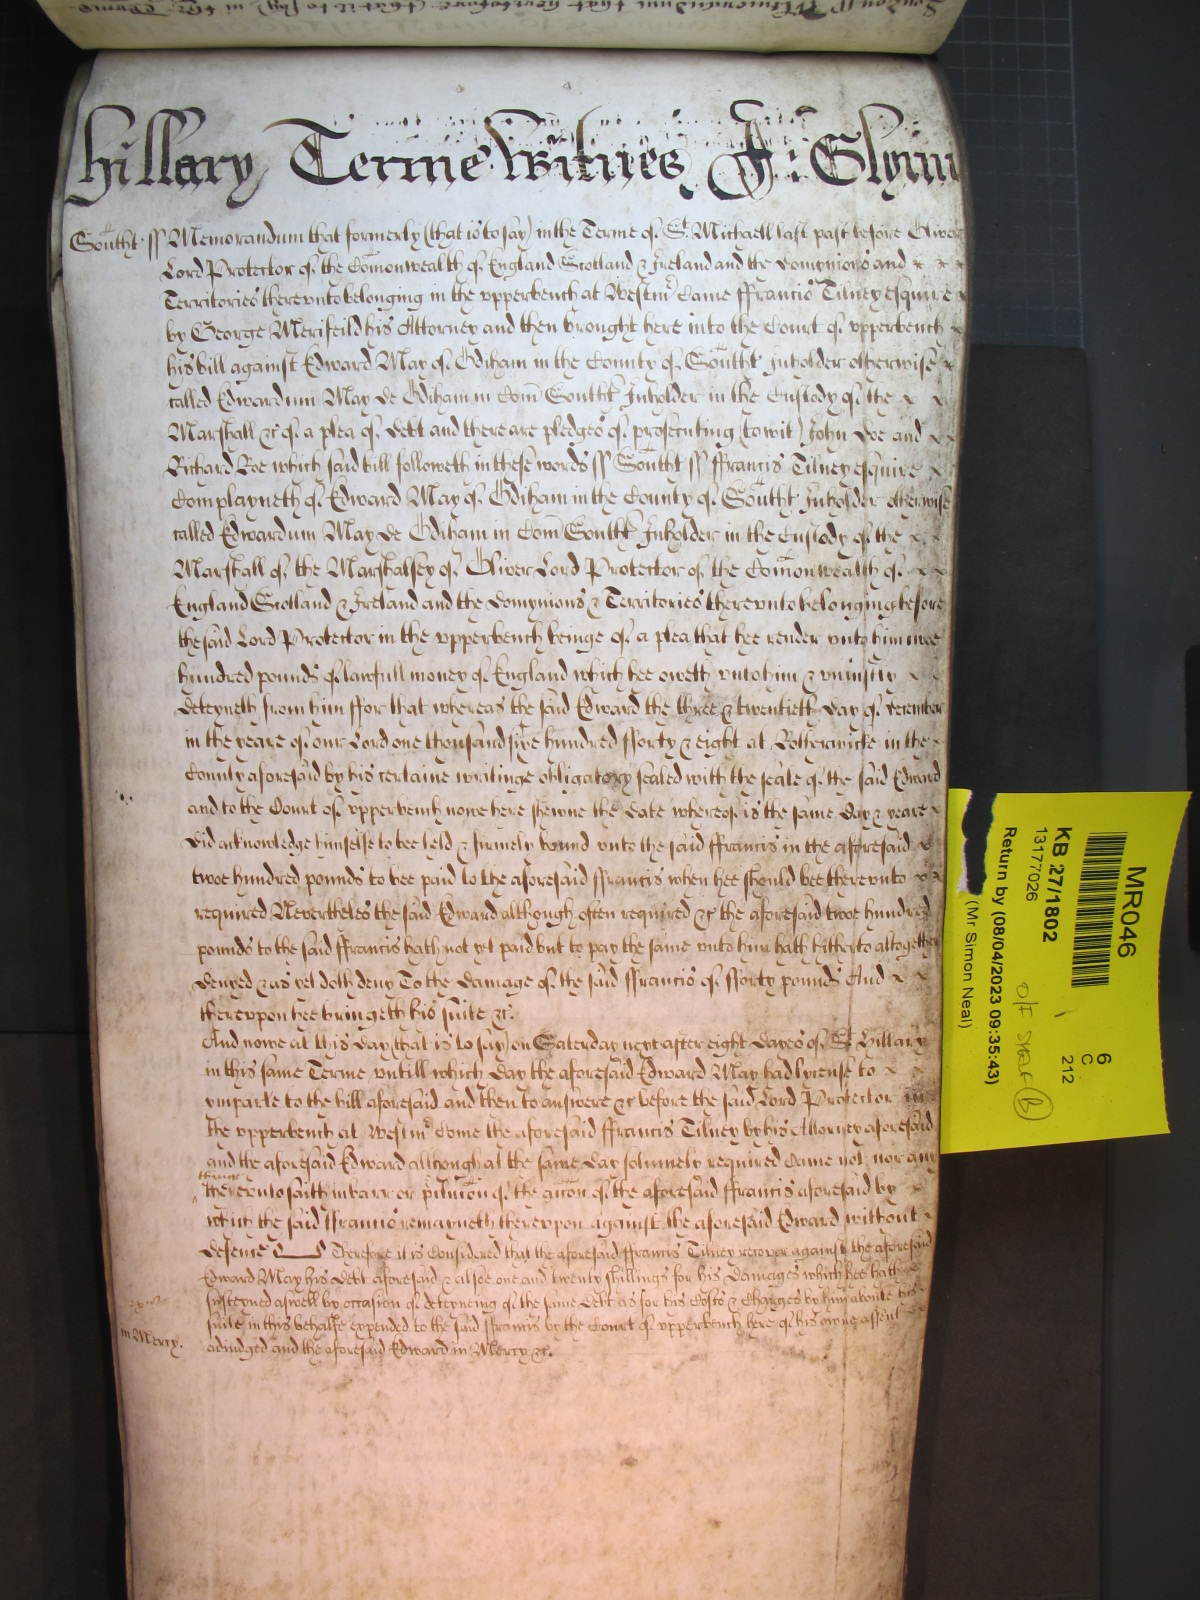 Hillary Terme Witnes J: Glynn
Southt ss Memorandum that formerly (that is to say) in the Terme of St Michaell last past before Oliver
Lord Protector of the Comonwealth of England Scotland & Ireland and the Dominions and
Territories thereunto belonging in the upperbench at Westmr Came ffrancis Tilney esquire
by George Merifeild his Attorney and then brought here into the Court of upperbench
his bill against Edward May of Odiham in the County of Southt Inholder otherwise
called Edwardum May de Odiham in Com Southt Inholder in the Custody of the
Marshall &c of a plea of debt and there are pledges of prosecuting (to wit) John Doe and
Richard Roe which said bill followeth in these words ss Southt ss ffrancis Tilney esquire
Complayneth of Edward May of Odiham in the County of Southt Inholder otherwise
called Edwardum May de Odiham in Com Southt Inholder in the Custody of the
Marshall of the Marshalsey of Oliver Lord Protector of the Comonwealth of
England Scotland & Ireland and the Dominions & Territories thereunto belonging before
the said Lord Protector in the upperbench beinge of a plea that hee render unto him twoe
hundred pounds of lawfull money of England which hee oweth unto him & uniustly
deteyneth from him ffor that whereas the said Edward the three & twentieth day of December
in the yeare of our Lord one thousand sixe hundred fforty & eight at Rotherwicke in the
County aforesaid by his certaine writinge obligatory sealed with the seale of the said Edward
and to the Court of upperbench nowe here shewne the date whereof is the same day & yeare
did acknowledge himselfe to bee held & firmely bound unto the said ffrancis in the aforesaid
twoe hundred pounds to bee paid to the aforesaid ffrancis when hee should bee thereunto
required Nevertheles the said Edward although often required &c the aforesaid twoe hundred
pounds to the said ffrancis hath not yet paid but to pay the same unto him hath hitherto altogether
denyed & as yet doth deny To the damage of the said ffrancis of fforty pounds And
thereupon hee bringeth his suite &c.
And nowe at this day (that is to say) on Saterday next after eight dayes of St Hillary
in this same Terme untill which day the aforesaid Edward May had lycense to
imparle to the bill aforesaid and then to answere &c before the said Lord Protector in
the upperbench at Westmr Come the aforesaid ffrancis Tilney by his Attorney aforesaid
and the aforesaid Edward although at the same day solemnely required Came not nor any
thinge
thereunto saith in barr or p'clusion of the accon of the aforesaid ffrancis aforesaid by
which the said ffrancis remayneth thereupon against the aforesaid Edward without
defence Therefore it is Considered that the aforesaid ffrancis Tilney recover against the aforesaid
Edward May his debt aforesaid & alsoe one and twenty shillings for his damages which hee hath
susteyned aswell by occasion of deteyneing of the same debt as for his Costs & Charges by him aboute his
suite in this behalfe expended to the said ffrancis by the Court of upperbench here of his owne assent
in Mercy.
adiudged and the aforesaid Edward in Mercy &c.
MR046
6
C
212
KB 27/1802
13177026
O/F SHELF (B)
Return by (08/04/2023 09:35:43)
(Mr Simon Neal)